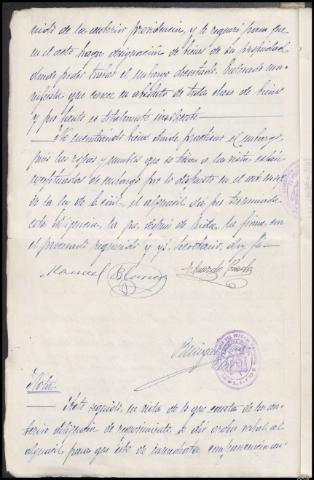 nido de la anterior providencia, y le requerí para que
en el acto haga designación de bienes de su propiedad
donde poder trabar el embargo decretado. Enterado ma-
nifiesta que carece en absoluto de toda clase de bienes
y por tanto es totalmente insolvente
No encontrando bienes donde practicar el embargo,
pues las ropas y muebles que se tienen a la vista están
exceptuados de embargo por lo dispuesto en el art.
de la ley de E. civil, el alguacil da por terminada
esta diligencia, la que después de leída, la firma con
el presente requerido y yo, Secretario, doy fe
Manuel Blanco Eduardo
Nota.
Acto seguido, en vista de lo que consta de la an-
terior diligencia de requerimiento, se dió orden verbal al
alguacil para que éste de inmediata comparecencia en